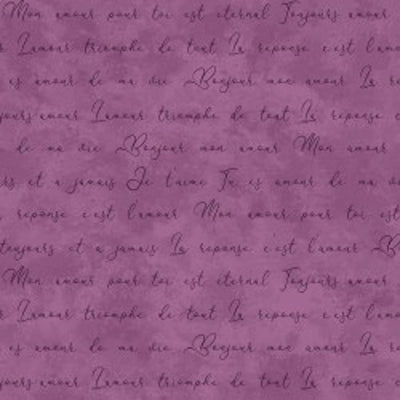 Mon amour pour toi est eternal Toujours amour
L'amour triomphe de tout La reponse c'est l'amo
es amour de ma vie Bonjour mon amour La re
jours amour L'amour triomphe de tout La reponse c
de ma vie Bonjour mon amour Mon amour
rs et a jamais Je t'aime Tu es amour de ma v
reponse c'est l'amour Mon amour pour toi est
toujours et a jamais La reponse c'est l'amour B
Mon amour pour toi est eternal Toujours amour
L'amour triomphe de tout La reponse c'est l'amo
es amour de ma vie Bonjour mon amour La re
jours amour L'amour triomphe de tout La reponse c